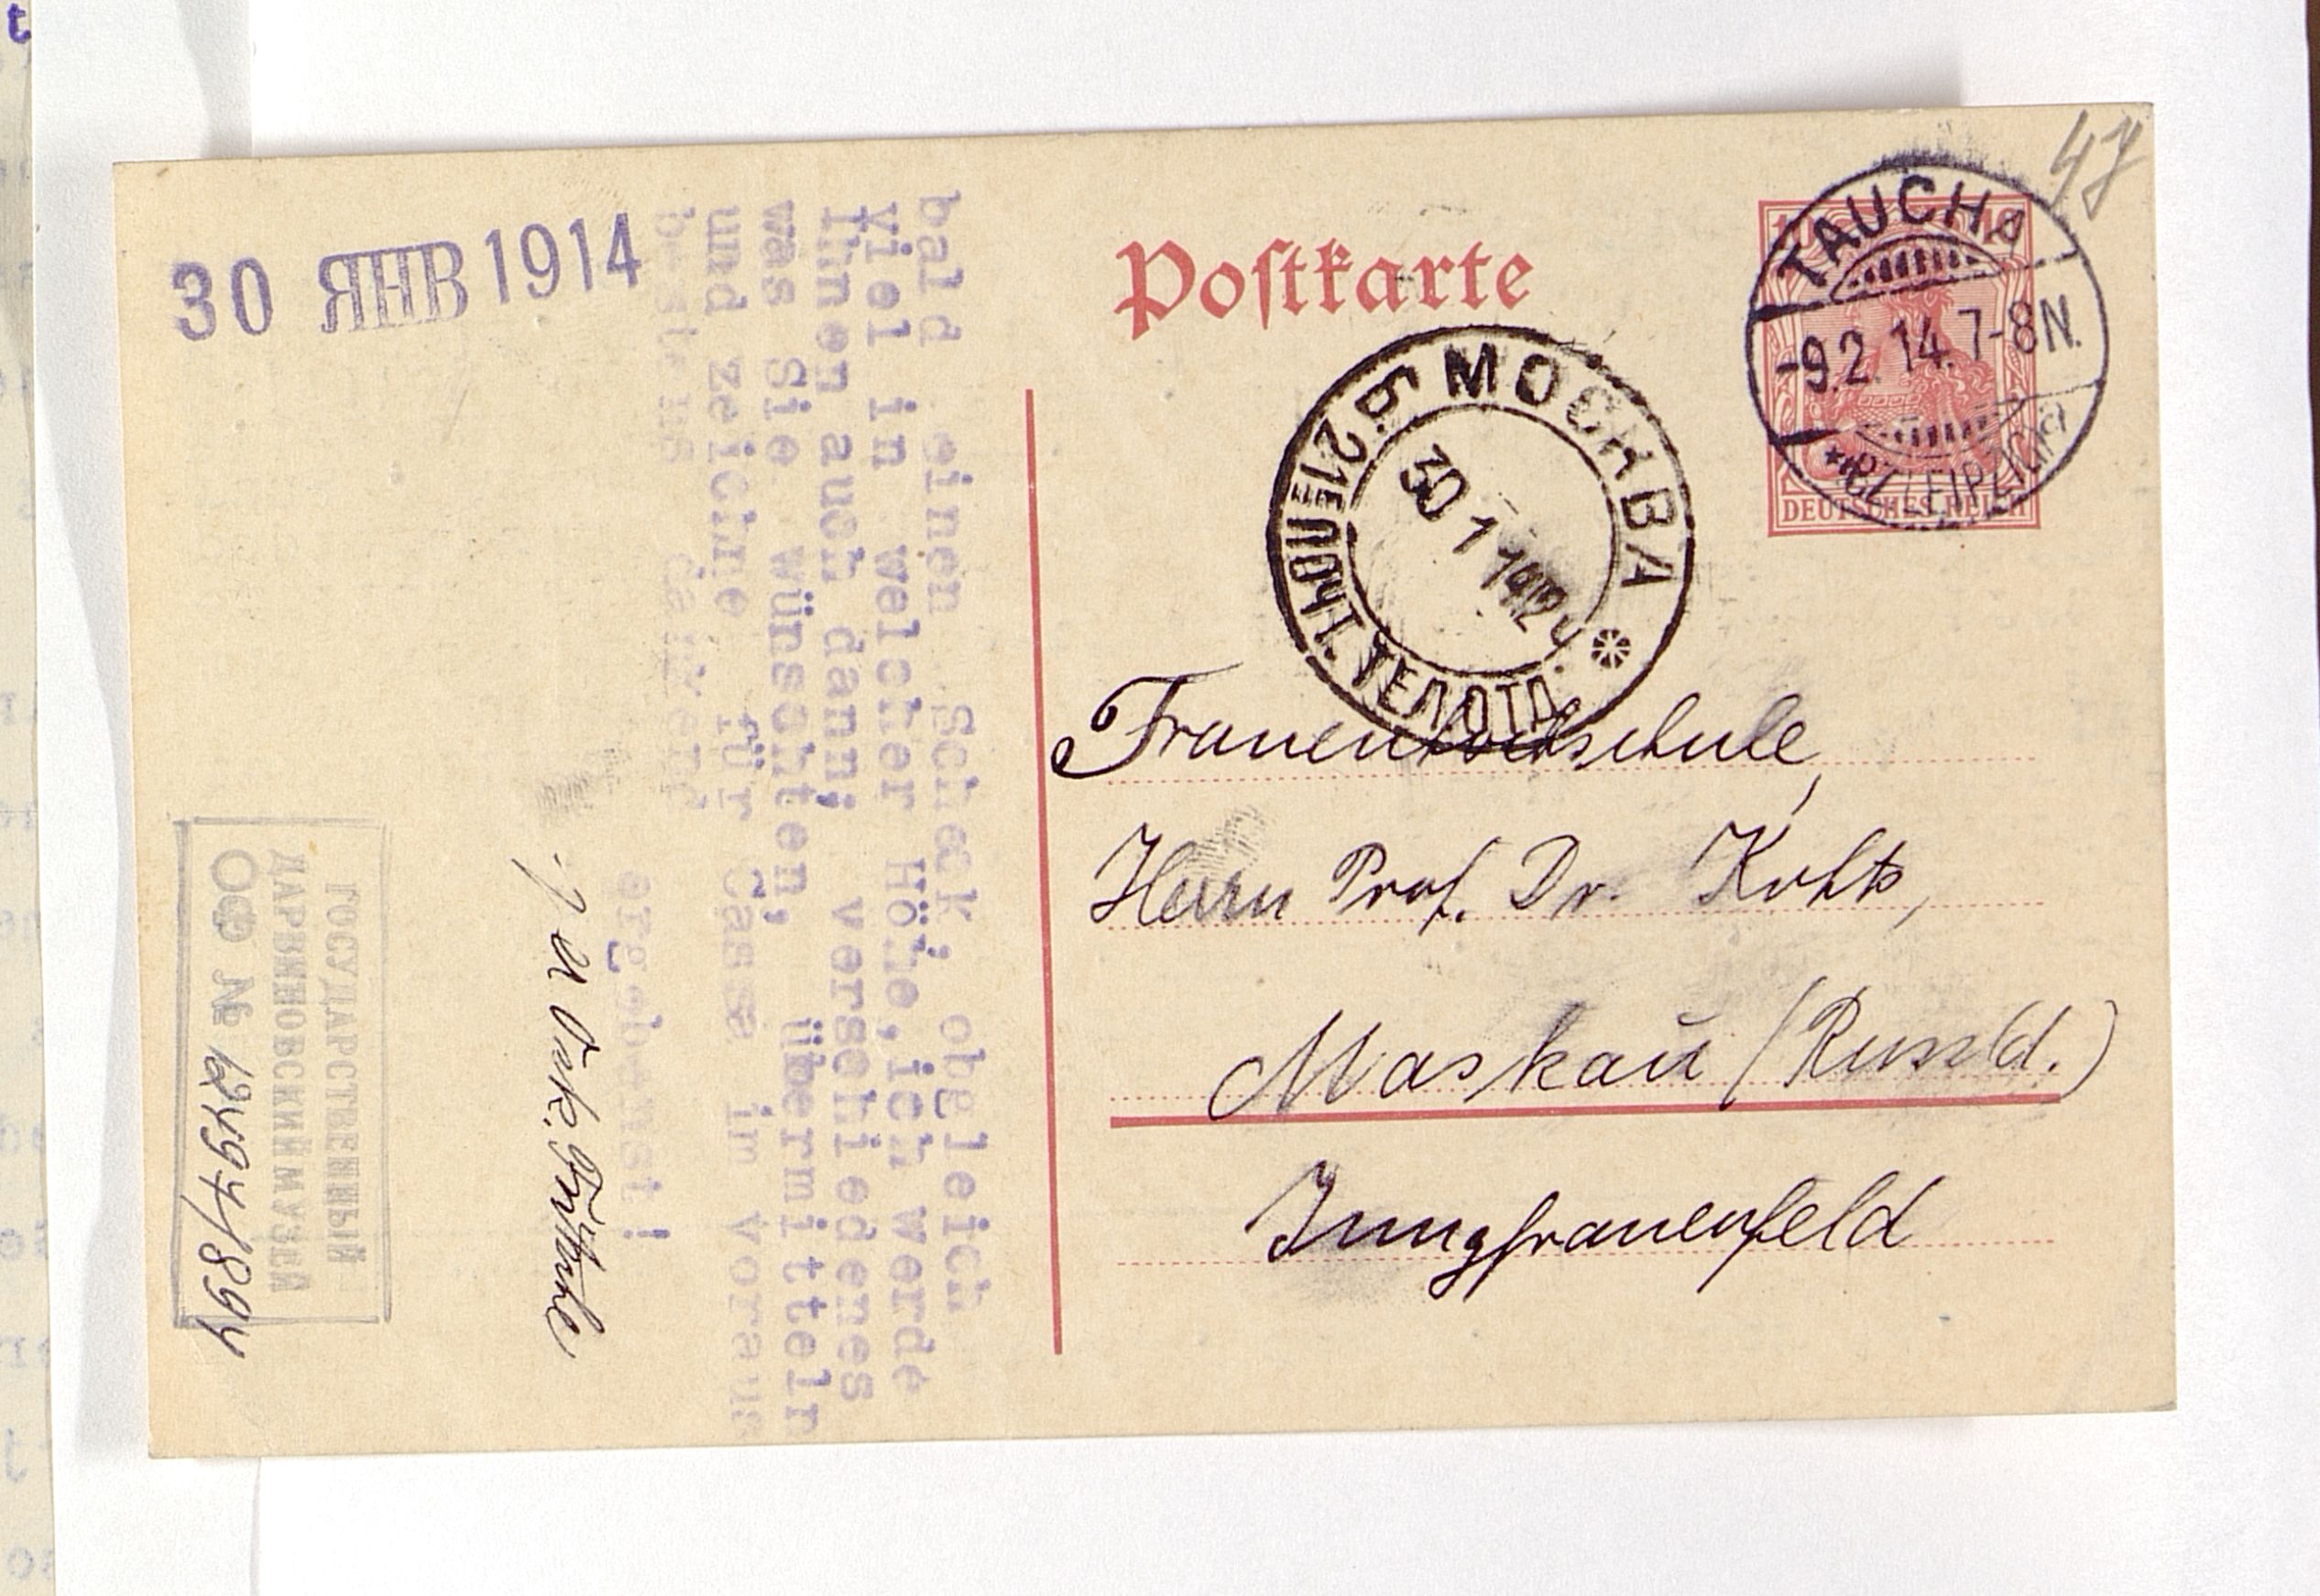 47
30 ЯНВ 1914
Postkarte
TAUCHA
-9.2.14. 7-8N.
(BZ. LEIPZIG)
10 10
DEUTSCHES REICH
МОСКВА
30 1 14
21
ТЕЛ.ОТД.
Frauenhochschule,
Herrn Prof. Dr. Kohts,
Moskau (Russld.)
Jungfrauenfeld
bald einen Scheck; obgleich
viel in welcher Höhe, ich werde
Ihnen auch dann; verschiedenes
was Sie wünschten, übermitteln
und zeichne für Casse im voraus
bestens dankend
ergebenst!
ГОСУДАРСТВЕННЫЙ
ДАРВИНОВСКИЙ МУЗЕЙ
ОФ №